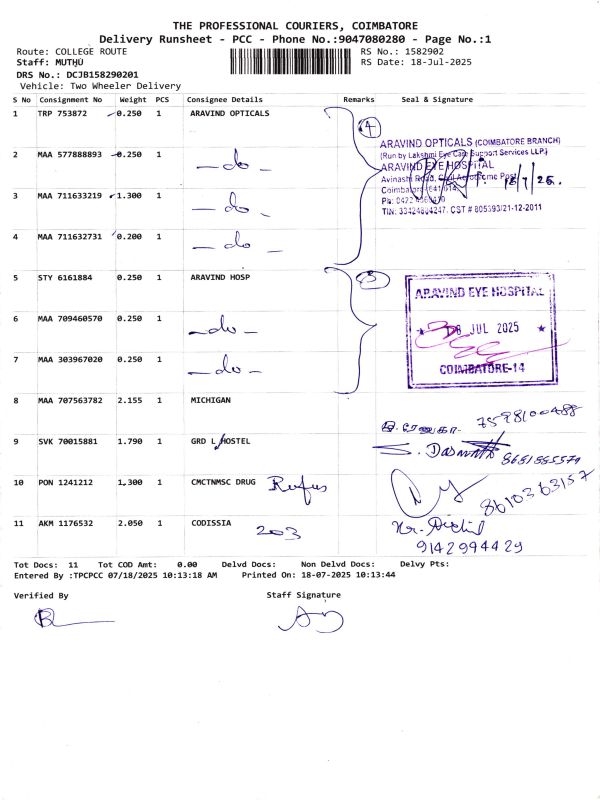 THE PROFESSIONAL COURIERS, COIMBATORE
Delivery Runsheet - PCC - Phone No.:9047080280 - Page No.:1
Route: COLLEGE ROUTE RS No.: 1582902
Staff: MUTHU RS Date: 18-Jul-2025
DRS No.: DCJB158290201
Vehicle: Two Wheeler Delivery
S No Consignment No Weight PCS Consignee Details Remarks Seal & Signature
1 TRP 753872 0.250 1 ARAVIND OPTICALS
4
ARAVIND OPTICALS (COIMBATORE BRANCH)
(Run by Lakshmi Eye Care Support Services LLP)
2 MAA 577888893 0.250 1 — do —
ARAVIND EYE HOSPITAL
Avinashi Road, Civil Aerodrome Post
18/7/25.
Coimbatore-641 014.
3 MAA 711633219 1.300 1 — do —
Ph: 0422
TIN: 33424804247. CST # 805593/21-12-2011
4 MAA 711632731 0.200 1 — do —
5 STY 6161884 0.250 1 ARAVIND HOSP
3
ARAVIND EYE HOSPITAL
6 MAA 709460570 0.250 1 — do —
★ 18 JUL 2025 ★
7 MAA 303967020 0.250 1 — do —
COIMBATORE-14
8 MAA 707563782 2.155 1 MICHIGAN
7598100488
9 SVK 70015881 1.790 1 GRD L HOSTEL
8681885579
10 PON 1241212 1,300 1 CMCTNMSC DRUG Rufus
8610363157
11 AKM 1176532 2.050 1 CODISSIA 203
9142994429
Tot Docs: 11 Tot COD Amt: 0.00 Delvd Docs: Non Delvd Docs: Delvy Pts:
Entered By :TPCPCC 07/18/2025 10:13:18 AM Printed On: 18-07-2025 10:13:44
Verified By Staff Signature